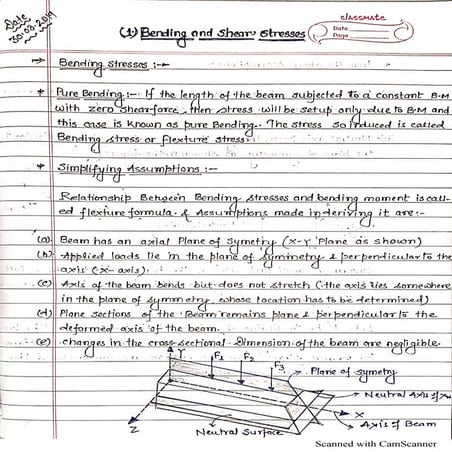 Date
30.03.2019
(1) Bending and Shear stresses
classmate
Date
Page
→ Bending Stresses :→
* Pure Bending :- If the length of the beam subjected to a constant B.M
with zero shear force, then stress will be setup only due to B.M and
this case is known as pure Bending. The stress so induced is called
Bending stress or flexture stress.
* Simplifying Assumptions :-
Relationship Between Bending stresses and bending moment is call-
ed flexture formula. & Assumptions made in deriving it are :-
(a) Beam has an axial Plane of Symetry (x-y Plane as shown)
(b) Applied loads lie in the plane of symmetry & perpendicular to the
axis (x-axis).
(c) Axis of the beam bends but does not stretch (the axis lies somewhere
in the plane of symmetry whose location has to be determined)
(d) Plane sections of the Beam remains plane & perpendicular to the
deformed axis of the beam.
(e) changes in the cross-sectional dimension of the beam are negligible.
Y F1 F2 F3
Plane of symetry
Neutral Axis of
X
Axis of Beam
Z
Neutral Surface
Scanned with CamScanner